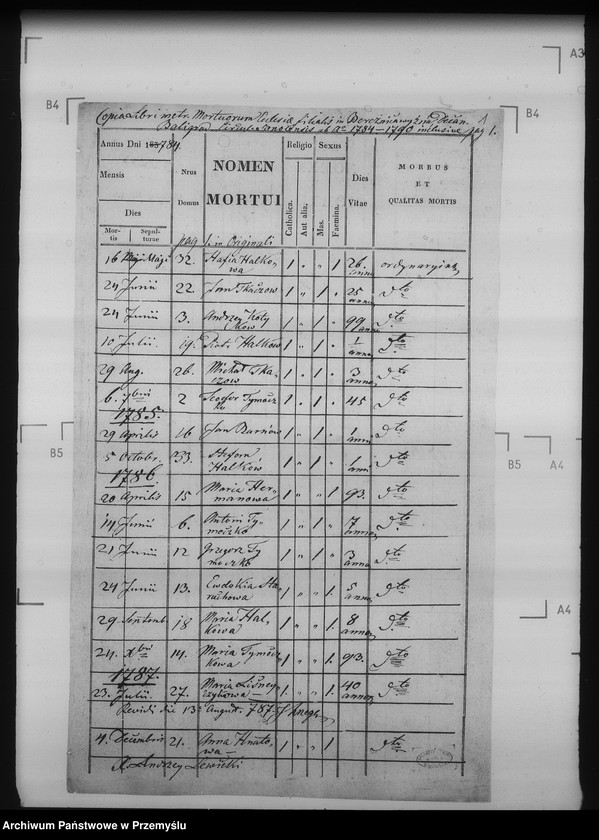 Copia Libri metr. Mortuorum Ecclesiae filialis in Bereźnica wyżna Decan.
Baligrod Circuli Sanocensis ab Ao 1784 – 1790 inclusive pag 1.
1
Annus Dni 1784.
Mensis
Dies
Mor-tis
Sepul-turae
Nrus Domus
NOMEN MORTUI
Religio
Catholica.
Aut alia.
Sexus
Mas.
Faemina.
Dies Vitae
MORBUS ET QUALITAS MORTIS
pag 1. in Originali
16 Maji 32. Hafia Halko-wa 1 " " 1 26. anno ordynaryina
24 Junii 22. Jan Tkaczow 1 " 1 " 25 anno dto
24 Junii 3. Andrzey 1 " 1 " 99 anno dto
10 Julii. 19. Piotr Halkow 1 " 1 " 1 anno dto
29 Aug. 26. Michał Tka-czow 1 " 1 " 3 anno dto
6. 7brii 2 Teodor Tymocz-ko 1 " 1 " 45 dto
1785.
29 Aprilis 16 Jan 1 " 1 " 1 anni dto
5 Octobr. 33. Stefan Halkow 1 " 1 " 1 anni dto
1786
20 Aprilis 15 Maria Her-manowa 1 " " 1 93. dto
14 Junii 6. Antoni Ty-moczko 1 " 1 " 7 anno dto
21 Junii 12 Grzegorz Ty-moczko 1 " 1 " 3 anno dto
24 Junii 13. Ewdokia Sta-ruchowa 1 " " 1. 5 anno dto
29. Septemb. 18 Maria Hal-kowa 1 " " 1. 8 anno dto
24. Xbrii 14. Maria Tymocz-kowa 1 " " 1. 93. dto
1787.
23. Julii. 27. Maria 1. " " 1. 40 annor. dto
Revidi die 13 August. 787.
4. Decembris 21. Anna Hnato-wa 1 " " 1 dto
X. Andrzey Lewicki
A3
B4
B4
B5
B5
A4
A4
Archiwum Państwowe w Przemyślu